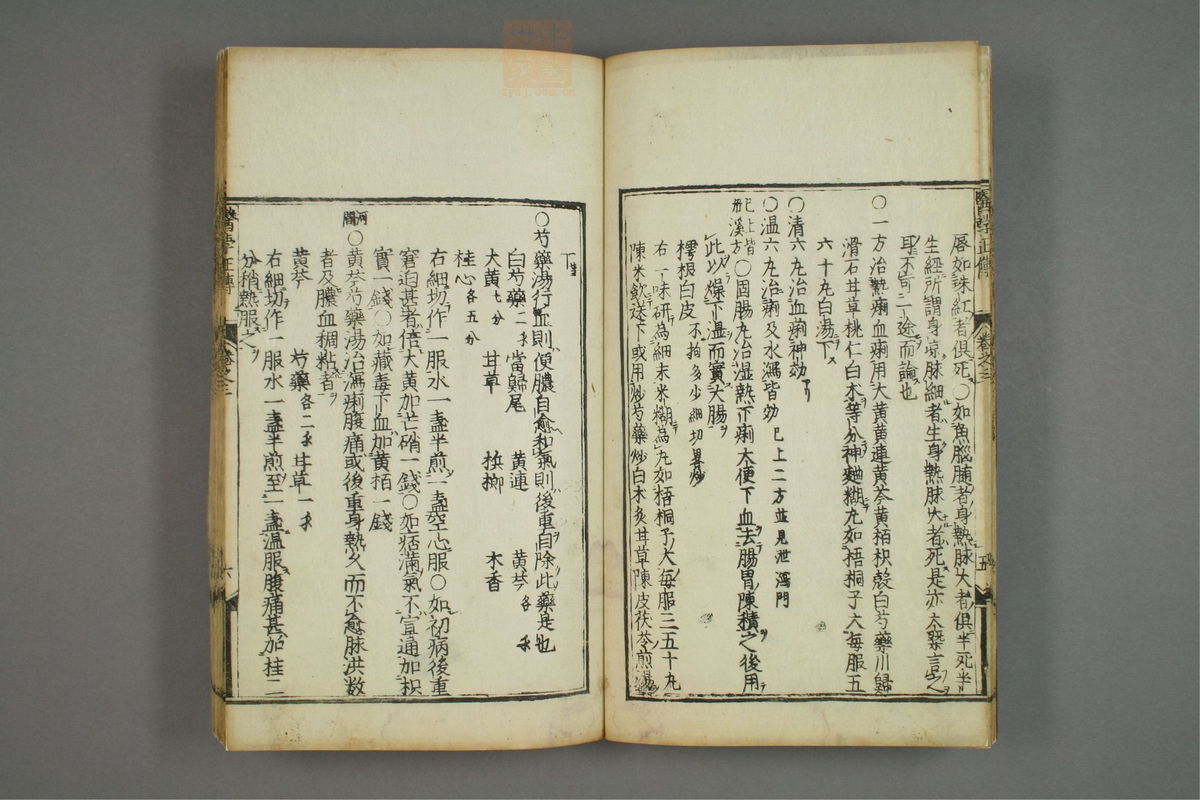 唇如珠紅者俱死○如魚腦腄者身熱脉大者俱半死半
生經所謂身凉脉細者生身熱脉大者死是亦大槩言之
耳不可一途而論也
○一方治熱痢血痢用大黃黃連黃芩黃栢枳殼白芍藥川歸
滑石甘草桃仁白朮等分神麯糊丸如梧桐子大每服五
六十丸白湯下
○清六丸治血痢神効
○温六丸治痢及水瀉皆効 已上二方並見泄瀉門
已上皆丹溪方
○固腸丸治湿熱下痢大便下血去腸胃陳積之後用
此以燥下湿而實大腸
樗根白皮 不拘多少細切畧炒
右一味研為細末米糊為丸如梧桐子大每服三五十丸
陳米飲送下或用炒芍藥炒白朮炙甘草陳皮茯苓煎湯
下
○芍藥湯行血則便膿自愈和氣則後重自除此藥是也
白芍藥二錢 當歸尾 黃連 黃芩各一錢
大黃七分 甘草 梹榔 木香
桂心各五分
右細切作一服水一盞半煎一盞空心服○如初病後重
窘迫甚者倍大黃加芒硝一錢○如痞滿氣不宣通加枳
實一錢○如藏毒下血加黃栢一錢
河間
○黃芩芍藥湯治瀉痢腹痛或後重身熱久而不愈脉洪数
者及膿血稠粘者
黃芩 芍藥各二錢 甘草一錢
右細切作一服水一盞半煎至一盞温服腹痛甚加桂二
分稍熱服之
醫學正傳 卷之三 五
醫學正傳 卷之三 六